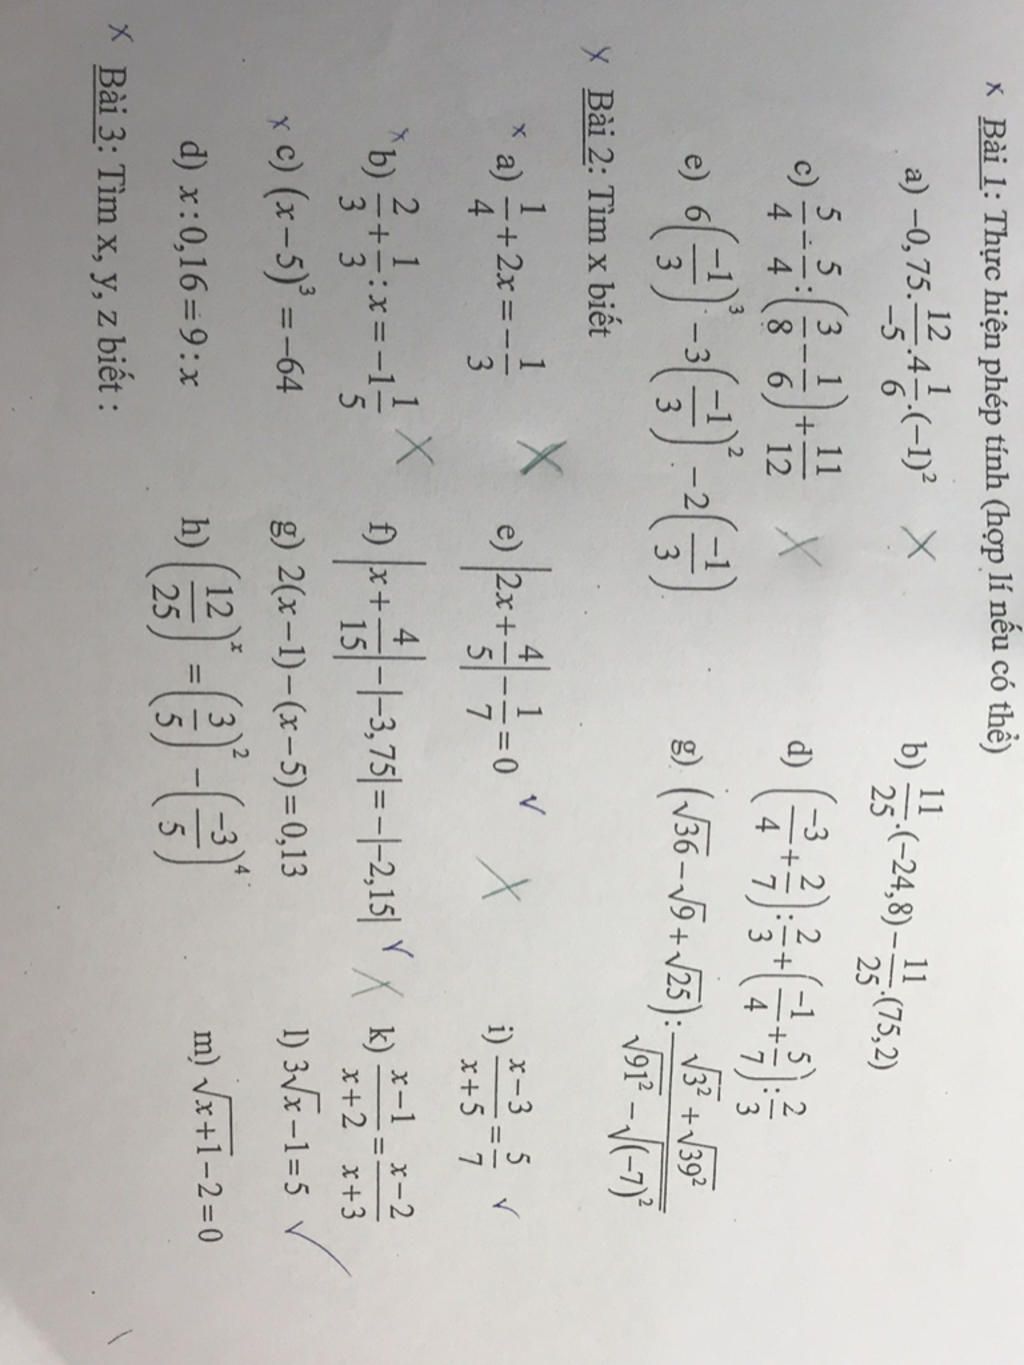 x Bài 1: Thực hiện phép tính (hợp lí nếu có thể)
a) −0,75 . 12/−5 . 4 1/6 . (−1)²
b) 11/25 . (−24,8) − 11/25 . (75,2)
c) 5/4 ÷ 5/4 : (3/8 − 1/6) + 11/12
d) (−3/4 + 2/7) : 2/3 + (−1/4 + 5/7) : 2/3
e) 6(−1/3)³ − 3(−1/3)² − 2(−1/3)
g) (√36 − √9 + √25) : (√3² + √39²)/(√91² − √(−7)²)
x Bài 2: Tìm x biết
x a) 1/4 + 2x = −1/3
e) |2x + 4/5| − 1/7 = 0 ✓
i) (x−3)/(x+5) = 5/7 ✓
x b) 2/3 + 1/3 : x = −1 1/5
f) |x + 4/15| − |−3,75| = −|−2,15| ✓
k) (x−1)/(x+2) = (x−2)/(x+3)
x c) (x−5)³ = −64
g) 2(x−1) − (x−5) = 0,13
l) 3√x − 1 = 5 ✓
d) x : 0,16 = 9 : x
h) (12/25)^x = (3/5)² − (−3/5)⁴
m) √(x+1) − 2 = 0
x Bài 3: Tìm x, y, z biết :